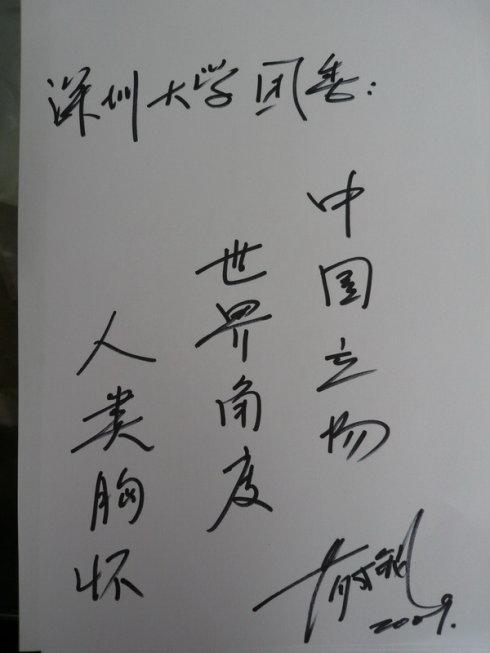 深圳大学团委：
中国立场
世界角度
人类胸怀
2009.